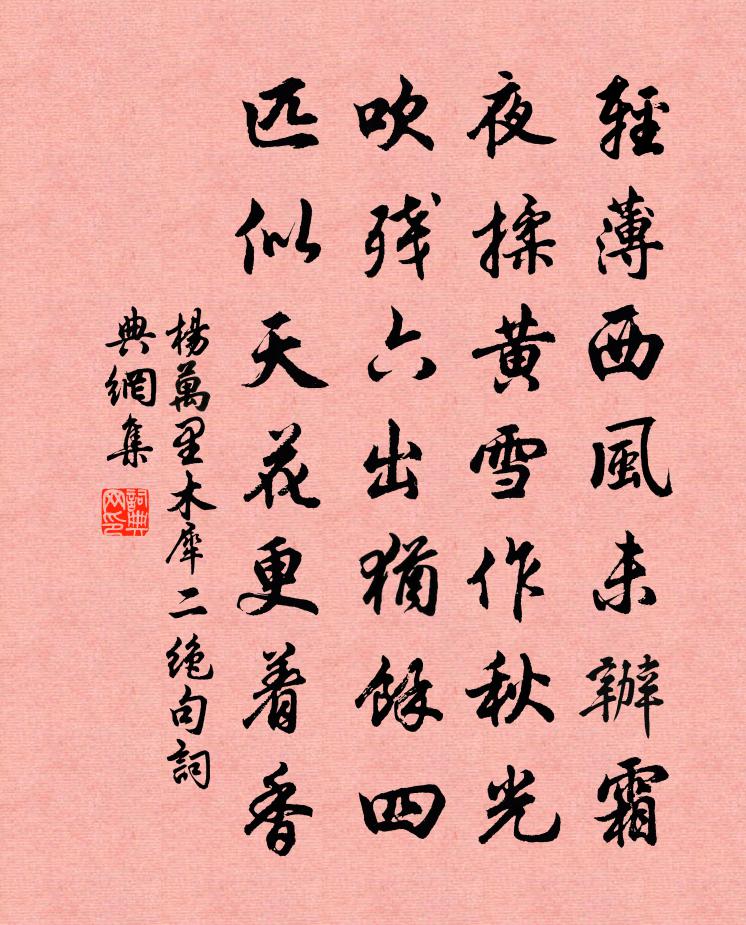 輕薄西風未辦霜
夜揉黃雪作秋光
吹殘六出猶餘四
匹似天花更着香
楊萬里木犀二絶句詞
典網集
詞典
网印